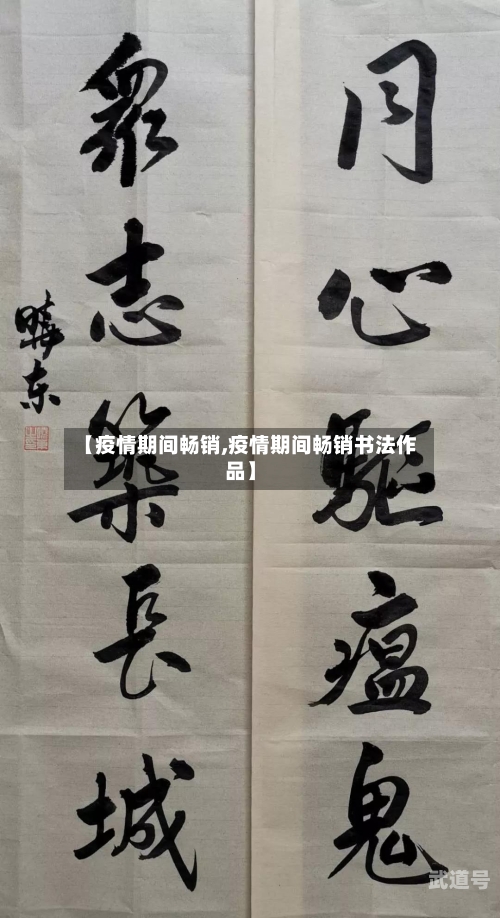 同心驅瘟鬼
眾志築長城
曉东
【疫情期间畅销,疫情期间畅销书法作
品】
武道号